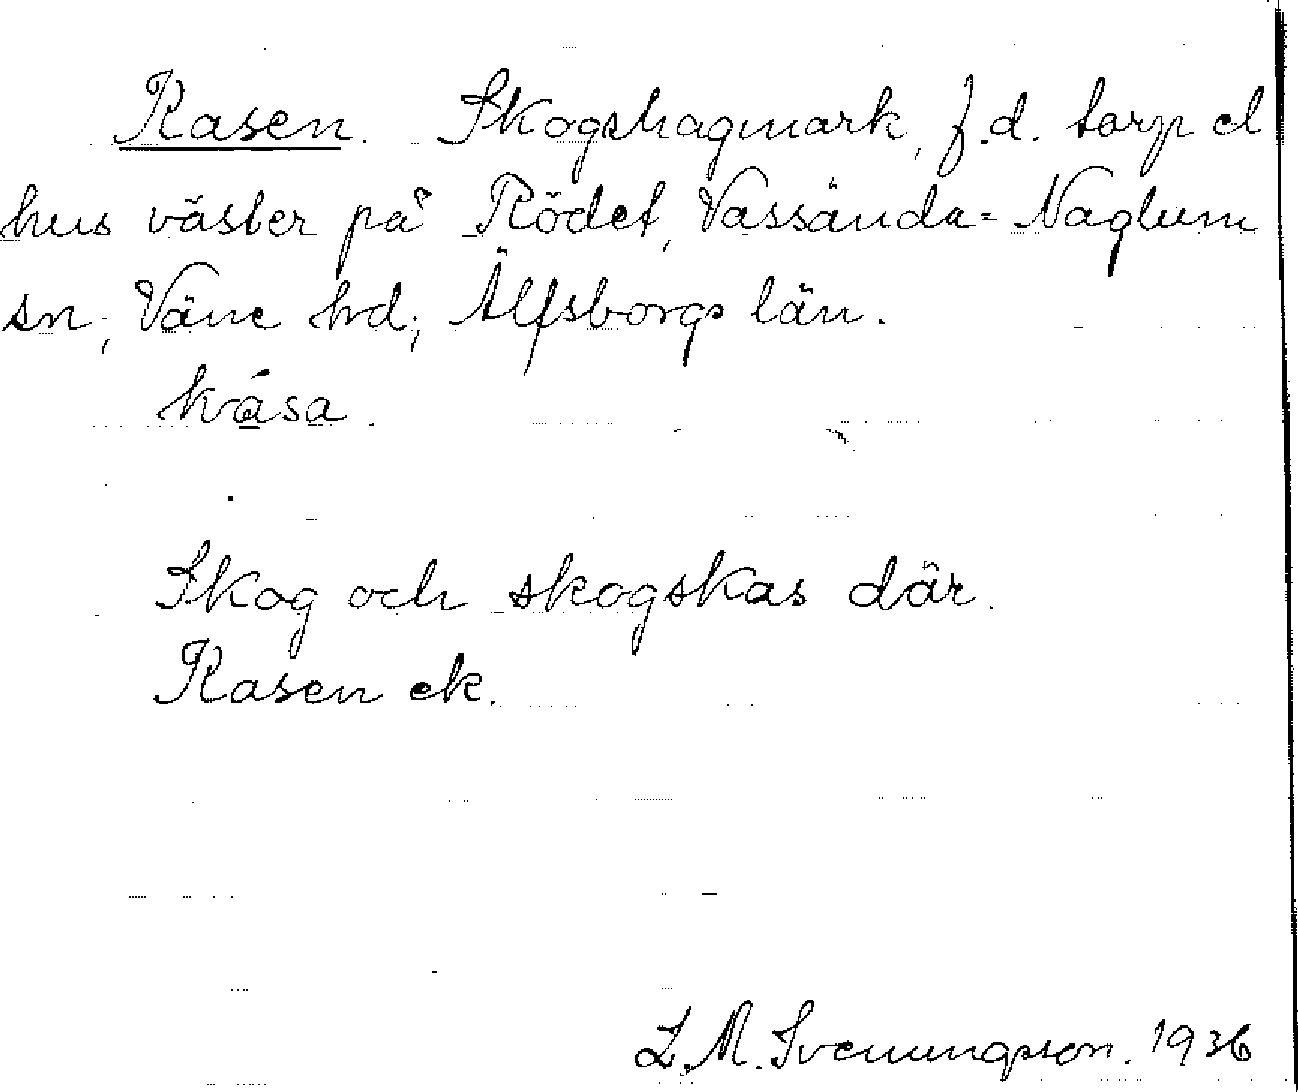 Rasen. Skogshagmark, f.d. torp el
hus väster på Rödet, Vassända-Naglum
sn; Väne hd; Älfsborgs län.
Skog och skogskas där.
Rasen ek.
L.M. Svenungsson. 1936